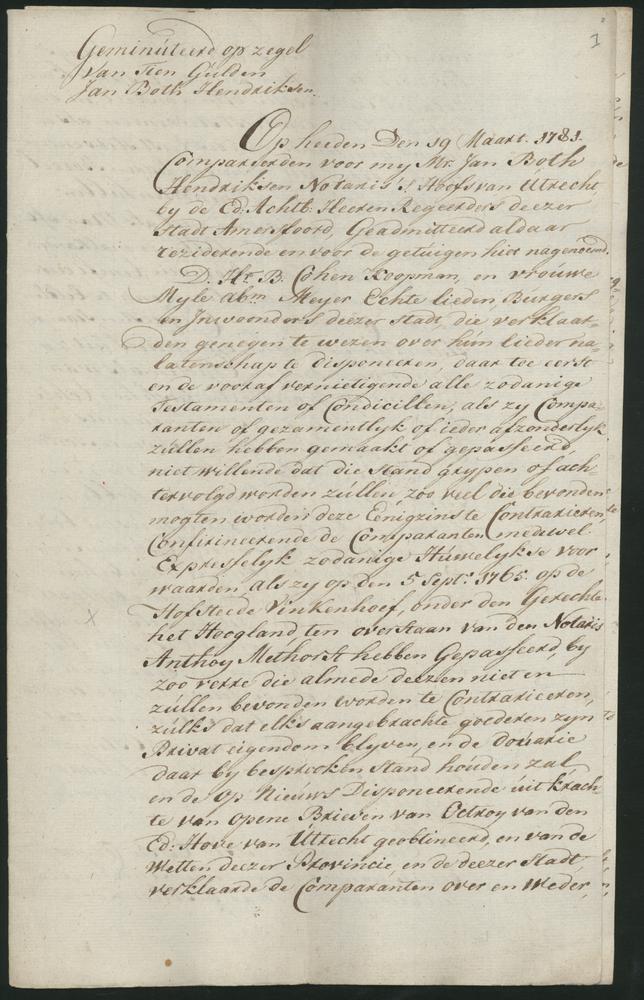 1
Geminuteerd op zegel
Van Tien Gulden
Jan Both Hendriksen.
Op heeden Den 19 Maart. 1781.
Compareerden voor my Mr. Jan Both
Hendriksen Notaris 's Hoofs van Utrecht
by de Ed: Achtb: Heeren Regeerders deezer
Stadt Amersfoord, Geadmitteerd aldaar
rezideerende en voor de getuigen hier nagenoemd.
D. Hr. B. Cohen Koopman, en vrouwe
Myle Abm Meyer Echte lieden, Burgers
en Jnwoonders deezer stadt, die verklaar-
den genegen te wezen over hun lieder na-
latenschap te disponeeren, daar toe eerst
en de vooraf vernietigende alle zodanige
Testamenten of Condicillen, als zy Compa-
ranten of gezamentlyk of ieder afzonderlyk
zullen hebben gemaakt of gepasseerd,
niet willende dat die stand grypen of ach-
tervolgd worden zullen zoo veel die bevonden
mogten worden deze Eenigzins te Contrarieeren
Confirmeerende de Comparanten meede wel
Expresselyk zodanige Huwelykse voor
waarden, als zy op den 5 Sept: 1765. op de
Hofsteede Vinkenhoef, onder den Gerechte
het Hoogland ten overstaan van den Notaris
Anthoy Methorst hebben Gepasseerd, by
zoo verre die almede deezen niet en
zullen bevonden worden te Contrarieeren,
zulks dat elks aangebrachte goederen zyn
Privat eigendom blyven, en de douarie
daar by besprooken stand houden zal
en de op Nieuws Disponeerende uit krach-
te van opene Brieven van Octroy van den
Ed: Hove van Uttrecht geobtineerd, en van de
Wetten deezer Provincie, en de deezer Stadt,
verklaarde de Comparanten over en weder,